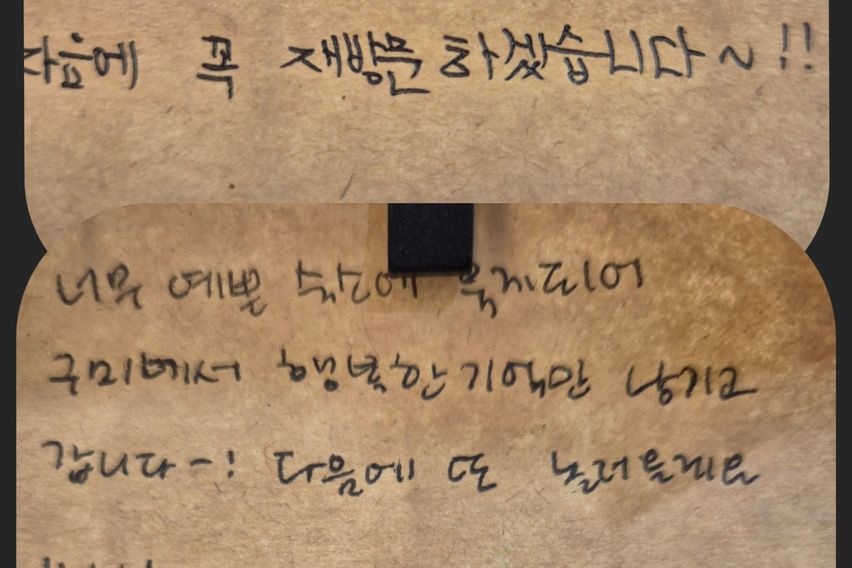 다음에 꼭 재방문 하겠습니다~!!
너무 예쁜 숙소에 묵게되어
구미에서 행복한 기억만 남기고
갑니다~! 다음에 또 놀러올게요